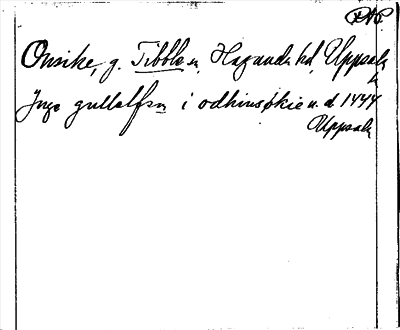 DAP
Onsike, g. Tibble sn, Hagunda hd, Uppsala
l.
Inge gullalfsn i odhinsøkie u. d 1444
Uppsala